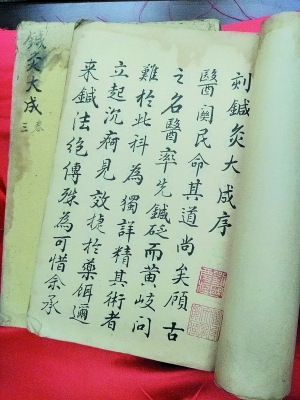 刻鍼灸大成序
醫關民命其道尚矣顧古
之名醫率先鍼砭而黃岐問
難於此科為獨詳精其術者
立起沉痾見效捷於藥餌邇
来鍼法絕傳殊為可惜余承
鍼灸大成
三卷